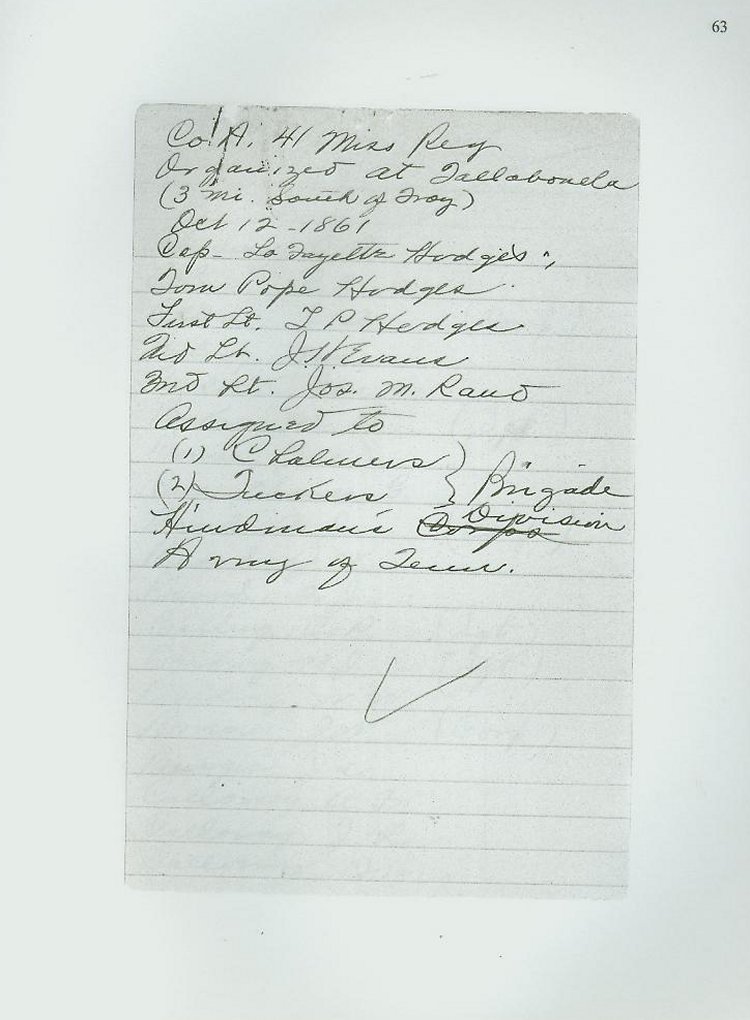 63
Co. A. 41 Miss Reg
Organized at Tallabonela
(3 mi. South of Troy)
Oct 12 - 1861
Cap- La Fayette Hodges,
Tom Pope Hodges
First Lt. T P Hodges
2nd Lt. J. H. Evans
3rd Lt. Jos. M. Rand
Assigned to
(1) Chalmers } Brigade
(2) Tuckers
Hindman's Corps Division
Army of Tenn.